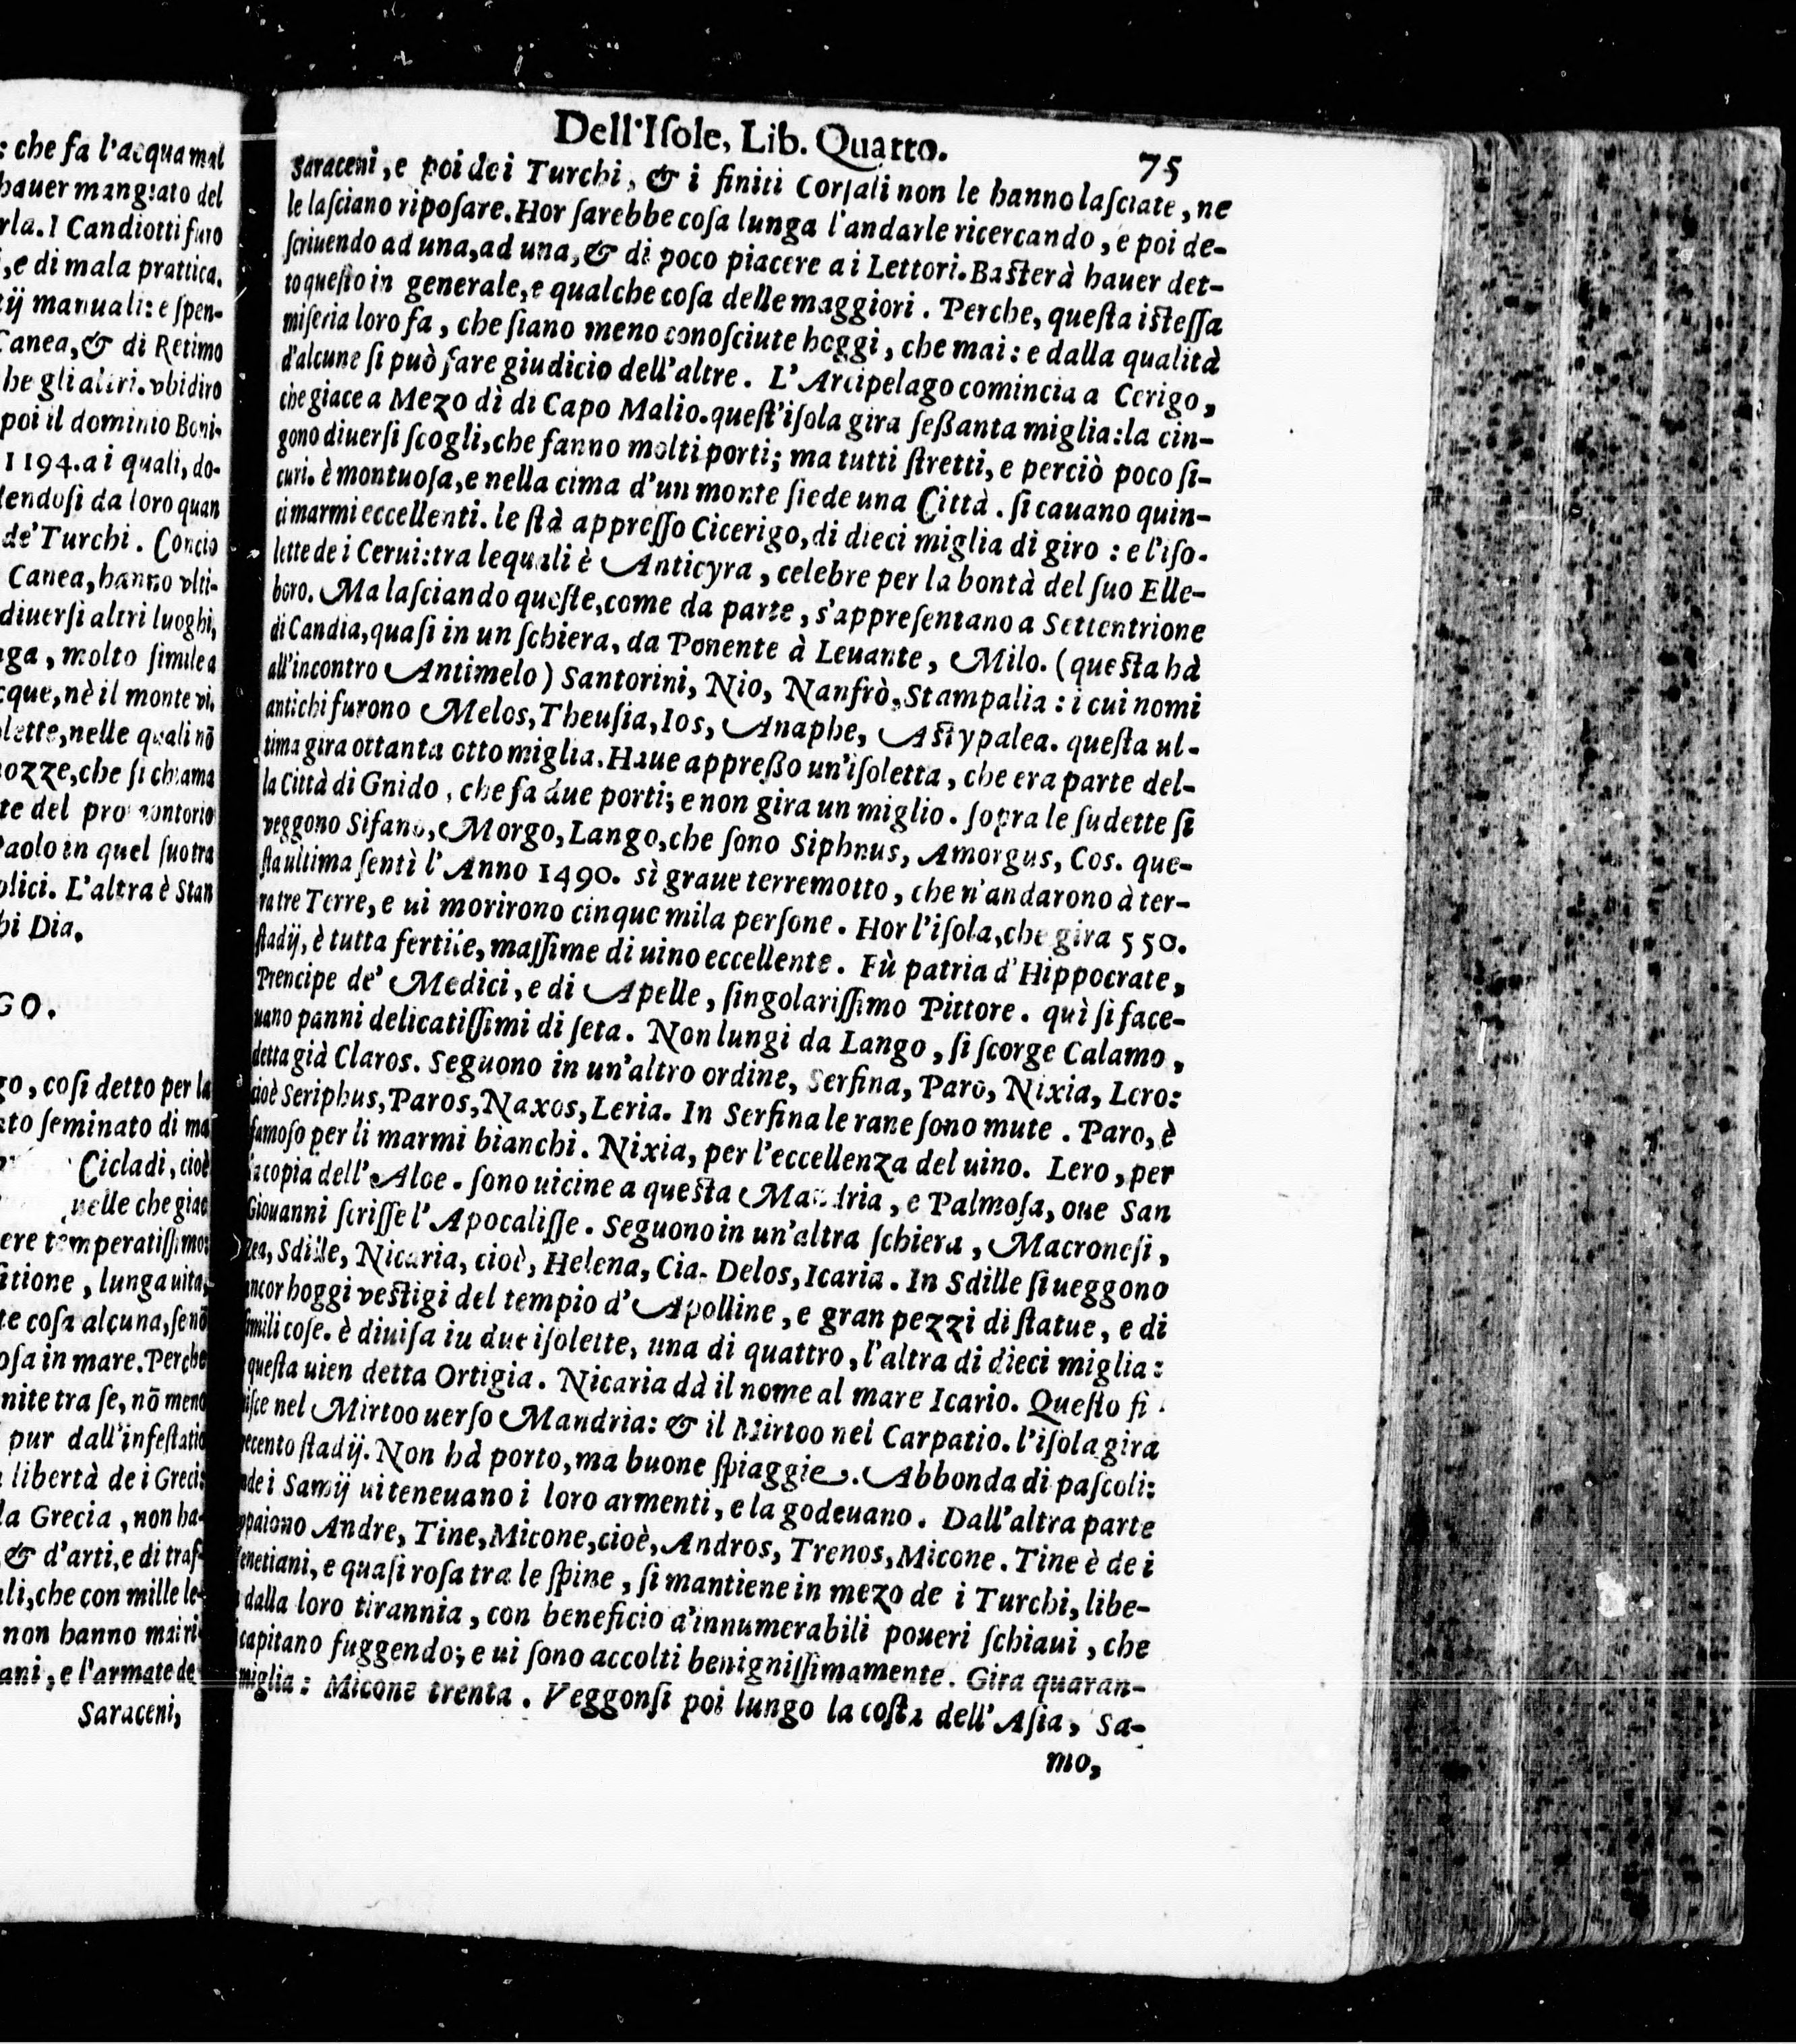 : che fa l'acqua mal
hauer mangiato del
rla. I Candiotti furo
, e di mala prattica.
tij manuali: e spen-
Canea, & di Retimo
he gli altri. vbidiro
poi il dominio Boni-
1194. a i quali, do-
dendosi da loro quan
de' Turchi. Concio
Canea, hanno vlti-
diuersi altri luoghi,
nga, molto simile a
cque, nè il monte vi,
olette, nelle quali nõ
nozze, che si chiama
te del promontorio
Paolo in quel suo tra
olici. L'altra è Stan
hi Dia.
GO.
go, cosi detto per la
ato seminato di ma
Cicladi, cioè
quelle che giac
ere temperatissimo:
sitione, lunga uita,
te cosa alcuna, se nõ
osa in mare. Perche
nite tra se, nõ meno
pur dall'infestatio
libertà de i Greci:
la Grecia, non ha-
& d'arti, e di traf-
ali, che con mille le-
non hanno mai ri-
ani, e l'armate de
Saraceni,
Dell'Isole, Lib. Quatto.
75
Saraceni, e poi dei Turchi, & i finiti Corsali non le hanno lasciate, ne
le lasciano riposare. Hor sarebbe cosa lunga l'andarle ricercando, e poi de-
scriuendo ad una, ad una, & di poco piacere a i Lettori. Basterà hauer det-
to questo in generale, e qualche cosa delle maggiori. Perche, questa istessa
miseria loro fa, che siano meno conosciute hoggi, che mai: e dalla qualità
d'alcune si può fare giudicio dell'altre. L'Arcipelago comincia a Cerigo,
che giace a Mezo dì di Capo Malio. quest'isola gira seßanta miglia: la cin-
gono diuersi scogli, che fanno molti porti; ma tutti stretti, e perciò poco si-
curi. è montuosa, e nella cima d'un monte siede una Città. si cauano quin-
ci marmi eccellenti. le stà appresso Cicerigo, di dieci miglia di giro: e l'iso-
lette de i Cerui: tra lequali è Anticyra, celebre per la bontà del suo Elle-
boro. Ma lasciando queste, come da parte, s'appresentano a Settentrione
di Candia, quasi in un schiera, da Ponente à Leuante, Milo. (questa hà
all'incontro Antimelo) Santorini, Nio, Nanfrò, Stampalia: i cui nomi
antichi furono Melos, Theusia, Ios, Anaphe, Astypalea. questa ul-
tima gira ottanta otto miglia. Haue appreßo un'isoletta, che era parte del-
la Città di Gnido, che fa due porti; e non gira un miglio. sopra le sudette si
veggono Sifano, Morgo, Lango, che sono Siphnus, Amorgus, Cos. que-
sta ultima sentì l'Anno 1490. sì graue terremotto, che n'andarono à ter-
ra tre Terre, e ui morirono cinque mila persone. Hor l'isola, che gira 550.
stadij, è tutta fertile, massime di uino eccellente. Fù patria d'Hippocrate,
Prencipe de' Medici, e di Apelle, singolarissimo Pittore. quì si face-
uano panni delicatissimi di seta. Non lungi da Lango, si scorge Calamo,
detta già Claros. Seguono in un'altro ordine, Serfina, Paro, Nixia, Lero:
cioè Seriphus, Paros, Naxos, Leria. In Serfina le rane sono mute. Paro, è
famoso per li marmi bianchi. Nixia, per l'eccellenza del uino. Lero, per
la copia dell'Aloe. sono uicine a questa Mandria, e Palmosa, oue San
Giouanni scrisse l'Apocalisse. Seguono in un'altra schiera, Macronesi,
Zea, Sdille, Nicaria, cioè, Helena, Cia. Delos, Icaria. In Sdille si ueggono
ancor hoggi vestigi del tempio d'Apolline, e gran pezzi di statue, e di
simili cose. è diuisa iu due isolette, una di quattro, l'altra di dieci miglia:
questa uien detta Ortigia. Nicaria dà il nome al mare Icario. Questo fi-
nisce nel Mirtoo uerso Mandria: & il Mirtoo nel Carpatio. l'isola gira
trecento stadij. Non hà porto, ma buone spiaggie. Abbonda di pascoli:
onde i Samij ui teneuano i loro armenti, e la godeuano. Dall'altra parte
appaiono Andre, Tine, Micone, cioè, Andros, Trenos, Micone. Tine è de i
Venetiani, e quasi rosa tra le spine, si mantiene in mezo de i Turchi, libe-
dalla loro tirannia, con beneficio d'innumerabili poueri schiaui, che
capitano fuggendo; e ui sono accolti benignissimamente. Gira quaran-
miglia: Micone trenta. Veggonsi poi lungo la costa dell'Asia, Sa-
mo,